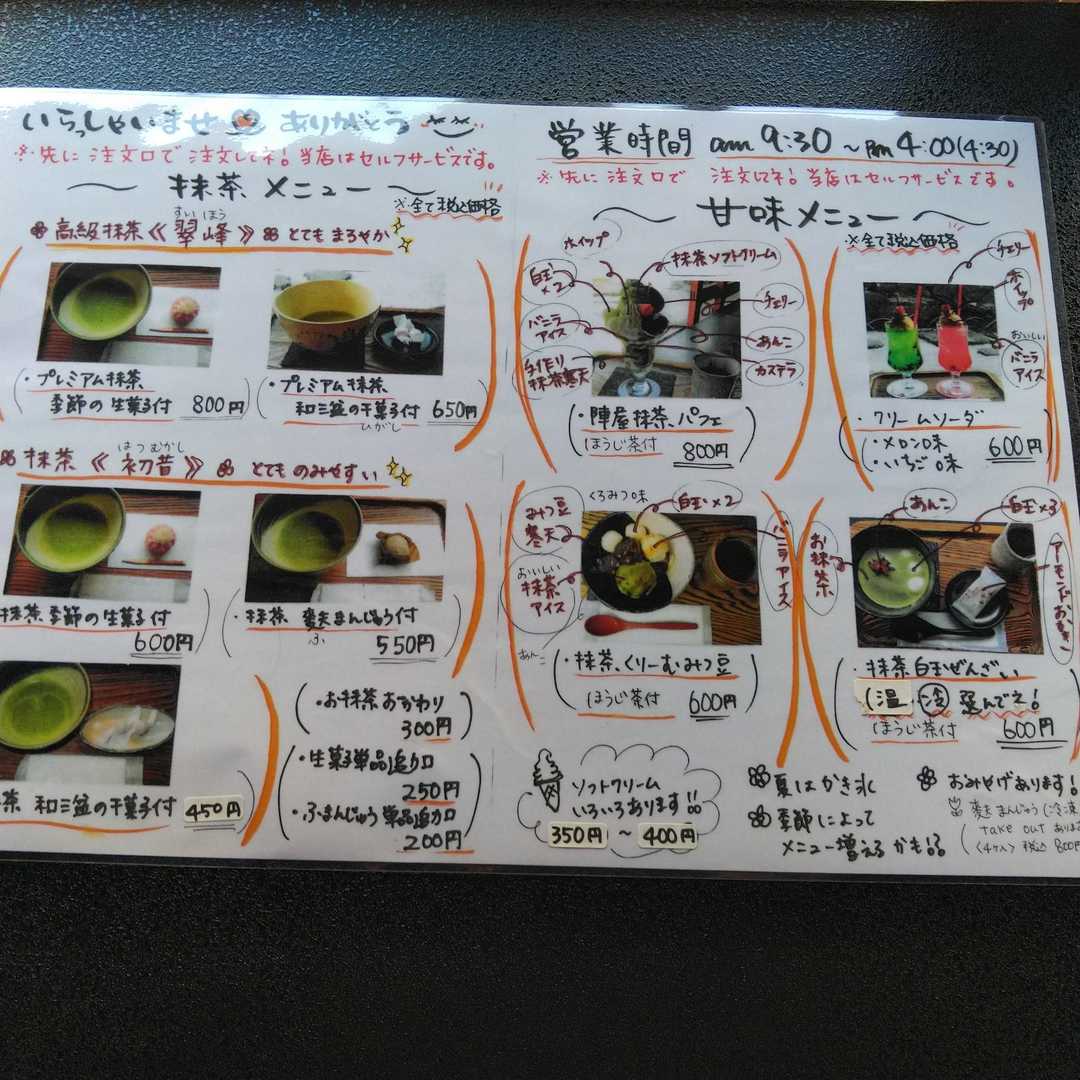 いらっしゃいませ ありがとう
※先に注文口で注文してネ！当店はセルフサービスです。
〜 抹茶メニュー 〜
※全て税込価格
すいほう
高級抹茶《翠峰》 とてもまろやか
・プレミアム抹茶
季節の生菓子付 800円
・プレミアム抹茶
和三盆の干菓子付 650円
ひがし
はつむかし
抹茶《初昔》 とてものみやすい
抹茶 季節の生菓子付
600円
・抹茶 麩まんじゅう付
ふ
550円
茶 和三盆の干菓子付 450円
・お抹茶おかわり
300円
・生菓子単品追加
250円
・ふまんじゅう単品追加
200円
営業時間 am 9:30 〜 pm 4:00(4:30)
※先に注文口で 注文してネ！当店はセルフサービスです。
〜 甘味メニュー 〜
※全て税込価格
ホイップ
抹茶ソフトクリーム
白玉×2
チェリー
バニラアイス
あんこ
手作り抹茶寒天
カステラ
・陣屋抹茶パフェ
ほうじ茶付 800円
チェリー
ホイップ
おいしい
バニラアイス
・クリームソーダ
・メロン味
・いちご味
600円
みつ豆
寒天
くろみつ味
白玉×2
バニラアイス
おいしい
抹茶アイス
あんこ
・抹茶くりーむみつ豆
ほうじ茶付 600円
あんこ
白玉×3
お抹茶
アーモンドおかき
・抹茶白玉ぜんざい
(温・冷 選んでネ！
ほうじ茶付 600円
ソフトクリーム
いろいろあります!!
350円 〜 400円
夏はかき氷
季節によって
メニュー増えるかも!!
おみやげあります！
麩まんじゅう(冷凍
take out ありま
〈4ケ入〉税込 800円